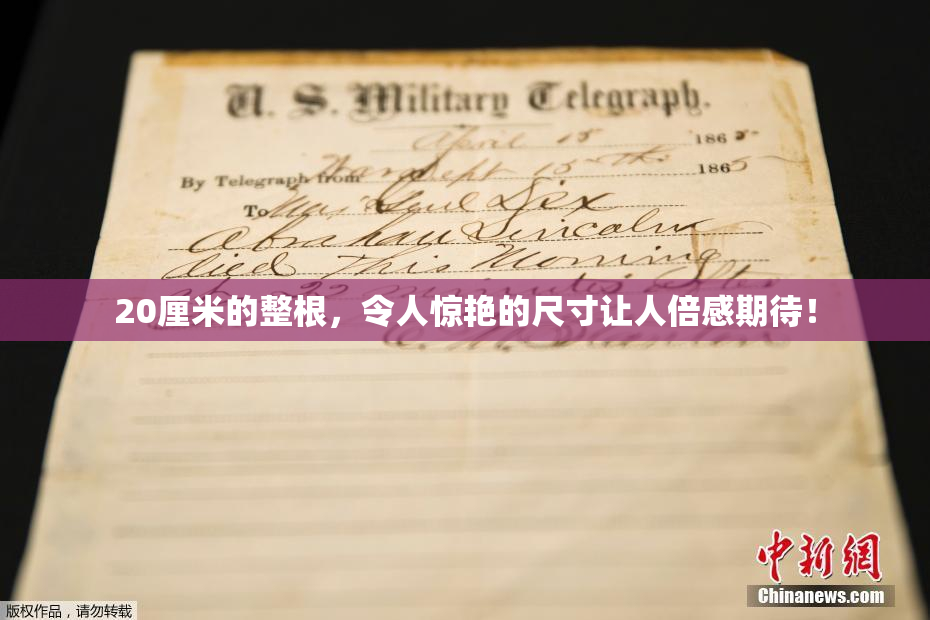 U. S. Military Telegraph.
April 15 1865
By Telegraph from War Dept 15th 1865
To Maj Genl Dix
Abraham Lincoln
died This Morning
22 minutes after
20厘米的整根，令人惊艳的尺寸让人倍感期待！
E. M. Stanton
中新网
Chinanews.com
版权作品，请勿转载